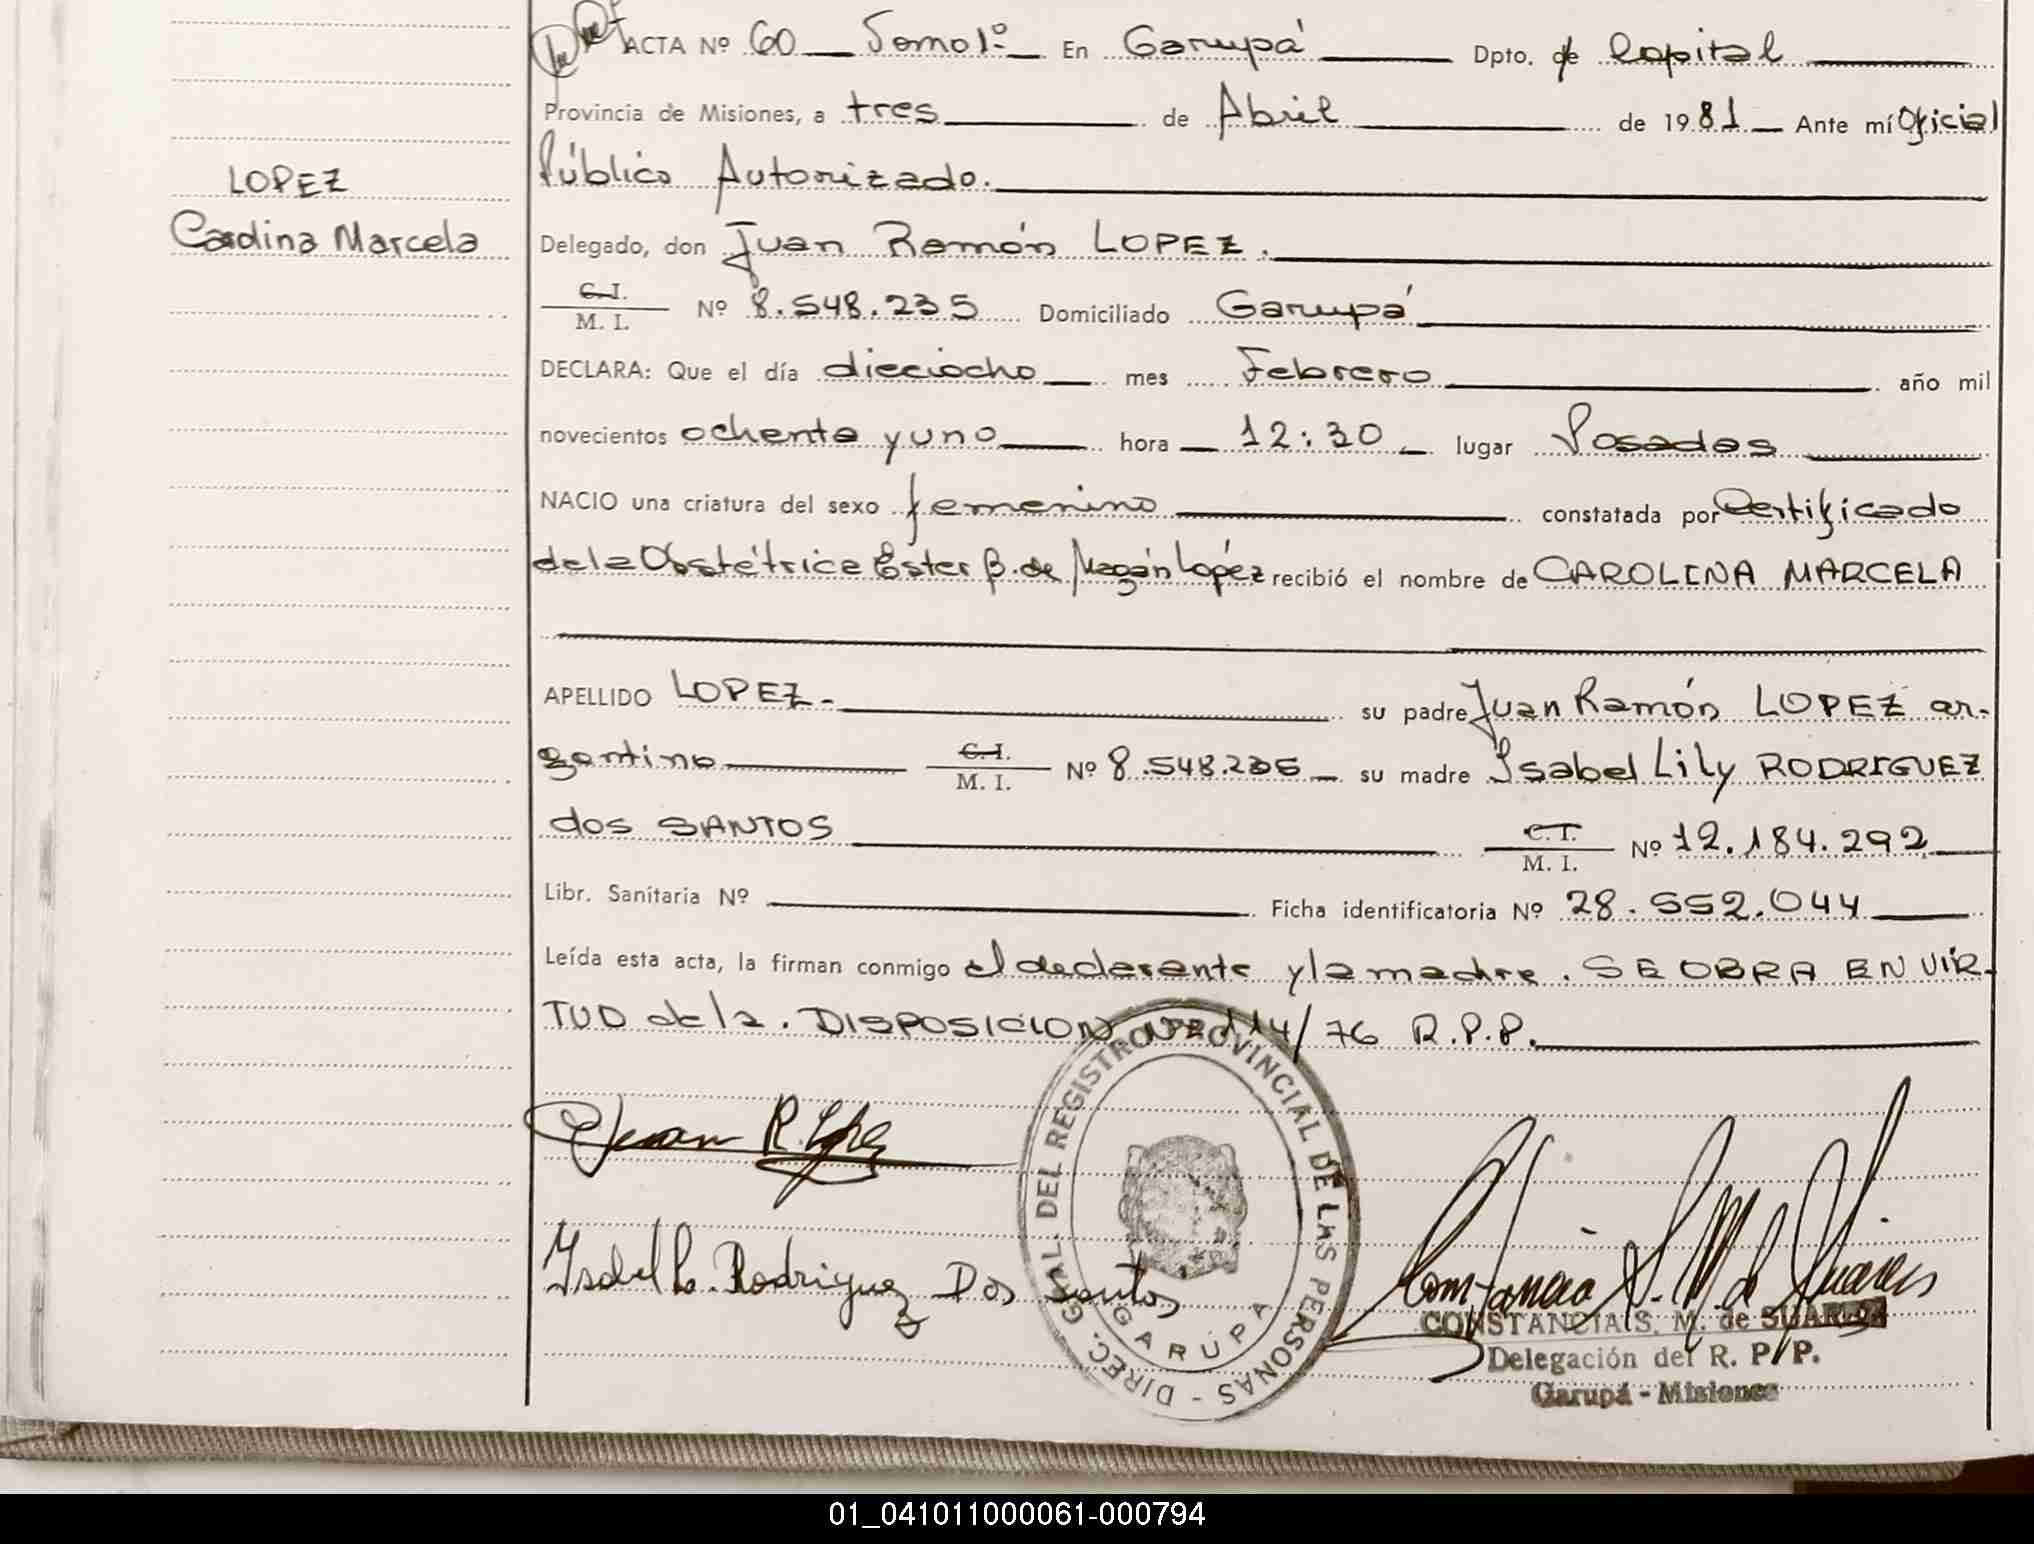 ACTA Nº 60 Tomo 1º En Garupá Dpto. de Capital
Provincia de Misiones, a tres de Abril de 1981 Ante mí Oficial
Público Autorizado.
LOPEZ
Carolina Marcela
Delegado, don Juan Ramón LOPEZ.
C.I.
M. I. Nº 8.548.235 Domiciliado Garupá
DECLARA: Que el día dieciocho mes Febrero año mil
novecientos ochenta y uno hora 12:30 lugar Posadas
NACIO una criatura del sexo femenino constatada por Certificado
de la Obstétrica Ester B. de Magán López recibió el nombre de CAROLINA MARCELA
APELLIDO LOPEZ.- su padre Juan Ramón LOPEZ ar-
gentino C.I.
M. I. Nº 8.548.235 su madre Isabel Lily RODRIGUEZ
dos SANTOS C.I.
M. I. Nº 12.184.292
Libr. Sanitaria Nº Ficha identificatoria Nº 28.552.044
Leída esta acta, la firman conmigo el declarante y la madre. SE OBRA EN VIR-
TUD de la. DISPOSICION Nº 114/76 R.P.P.
Juan R. López
Isabel L. Rodriguez Dos Santos
DIREC. GRAL. DEL REGISTRO PROVINCIAL DE LAS PERSONAS -
GARUPÁ
Constancia S. M. de Suárez
CONSTANCIA S. M. de SUAREZ
Delegación del R. P. P.
Garupá - Misiones
01_041011000061-000794